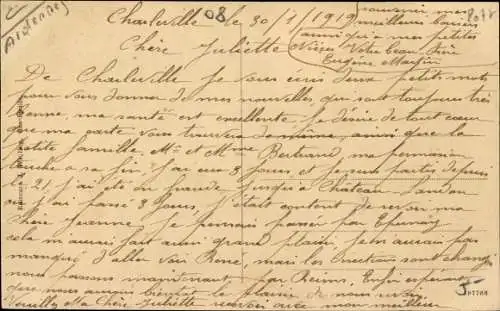 Ardennes
Charleville le 30/1/1919
08
Chère Juliette
souvenir mes
meilleurs baisers
ainsi qu'à mes petites
Nièces Votre beau-frère
Eugène Martin
De Charleville je vous écris deux petits mots
pour vous donner de mes nouvelles qui sont toujours très
bonne, ma santé est excellente je désire de tout cœur
que ma carte vous trouvera de même ainsi que la
petite famille Mr et Mme Bertrand, ma permission
touche a sa fin j'ai eu 8 jours et
le 21 j'ai été en jusqu'à Château-
ou j'ai passé 8 jours j'étais content de revoir ma
chère Jeanne je pensais passer par Epernay
cela m'aurait fait aussi grand plaisir, je n'aurais pas
manqué d'aller voir René, mais les directions sont changé
nous passons maintenant par Reims. Enfin espérant
que nous aurons bientôt le plaisir de nous revoir
Veuillez Ma Chère Juliette recevoir avec mon meilleur